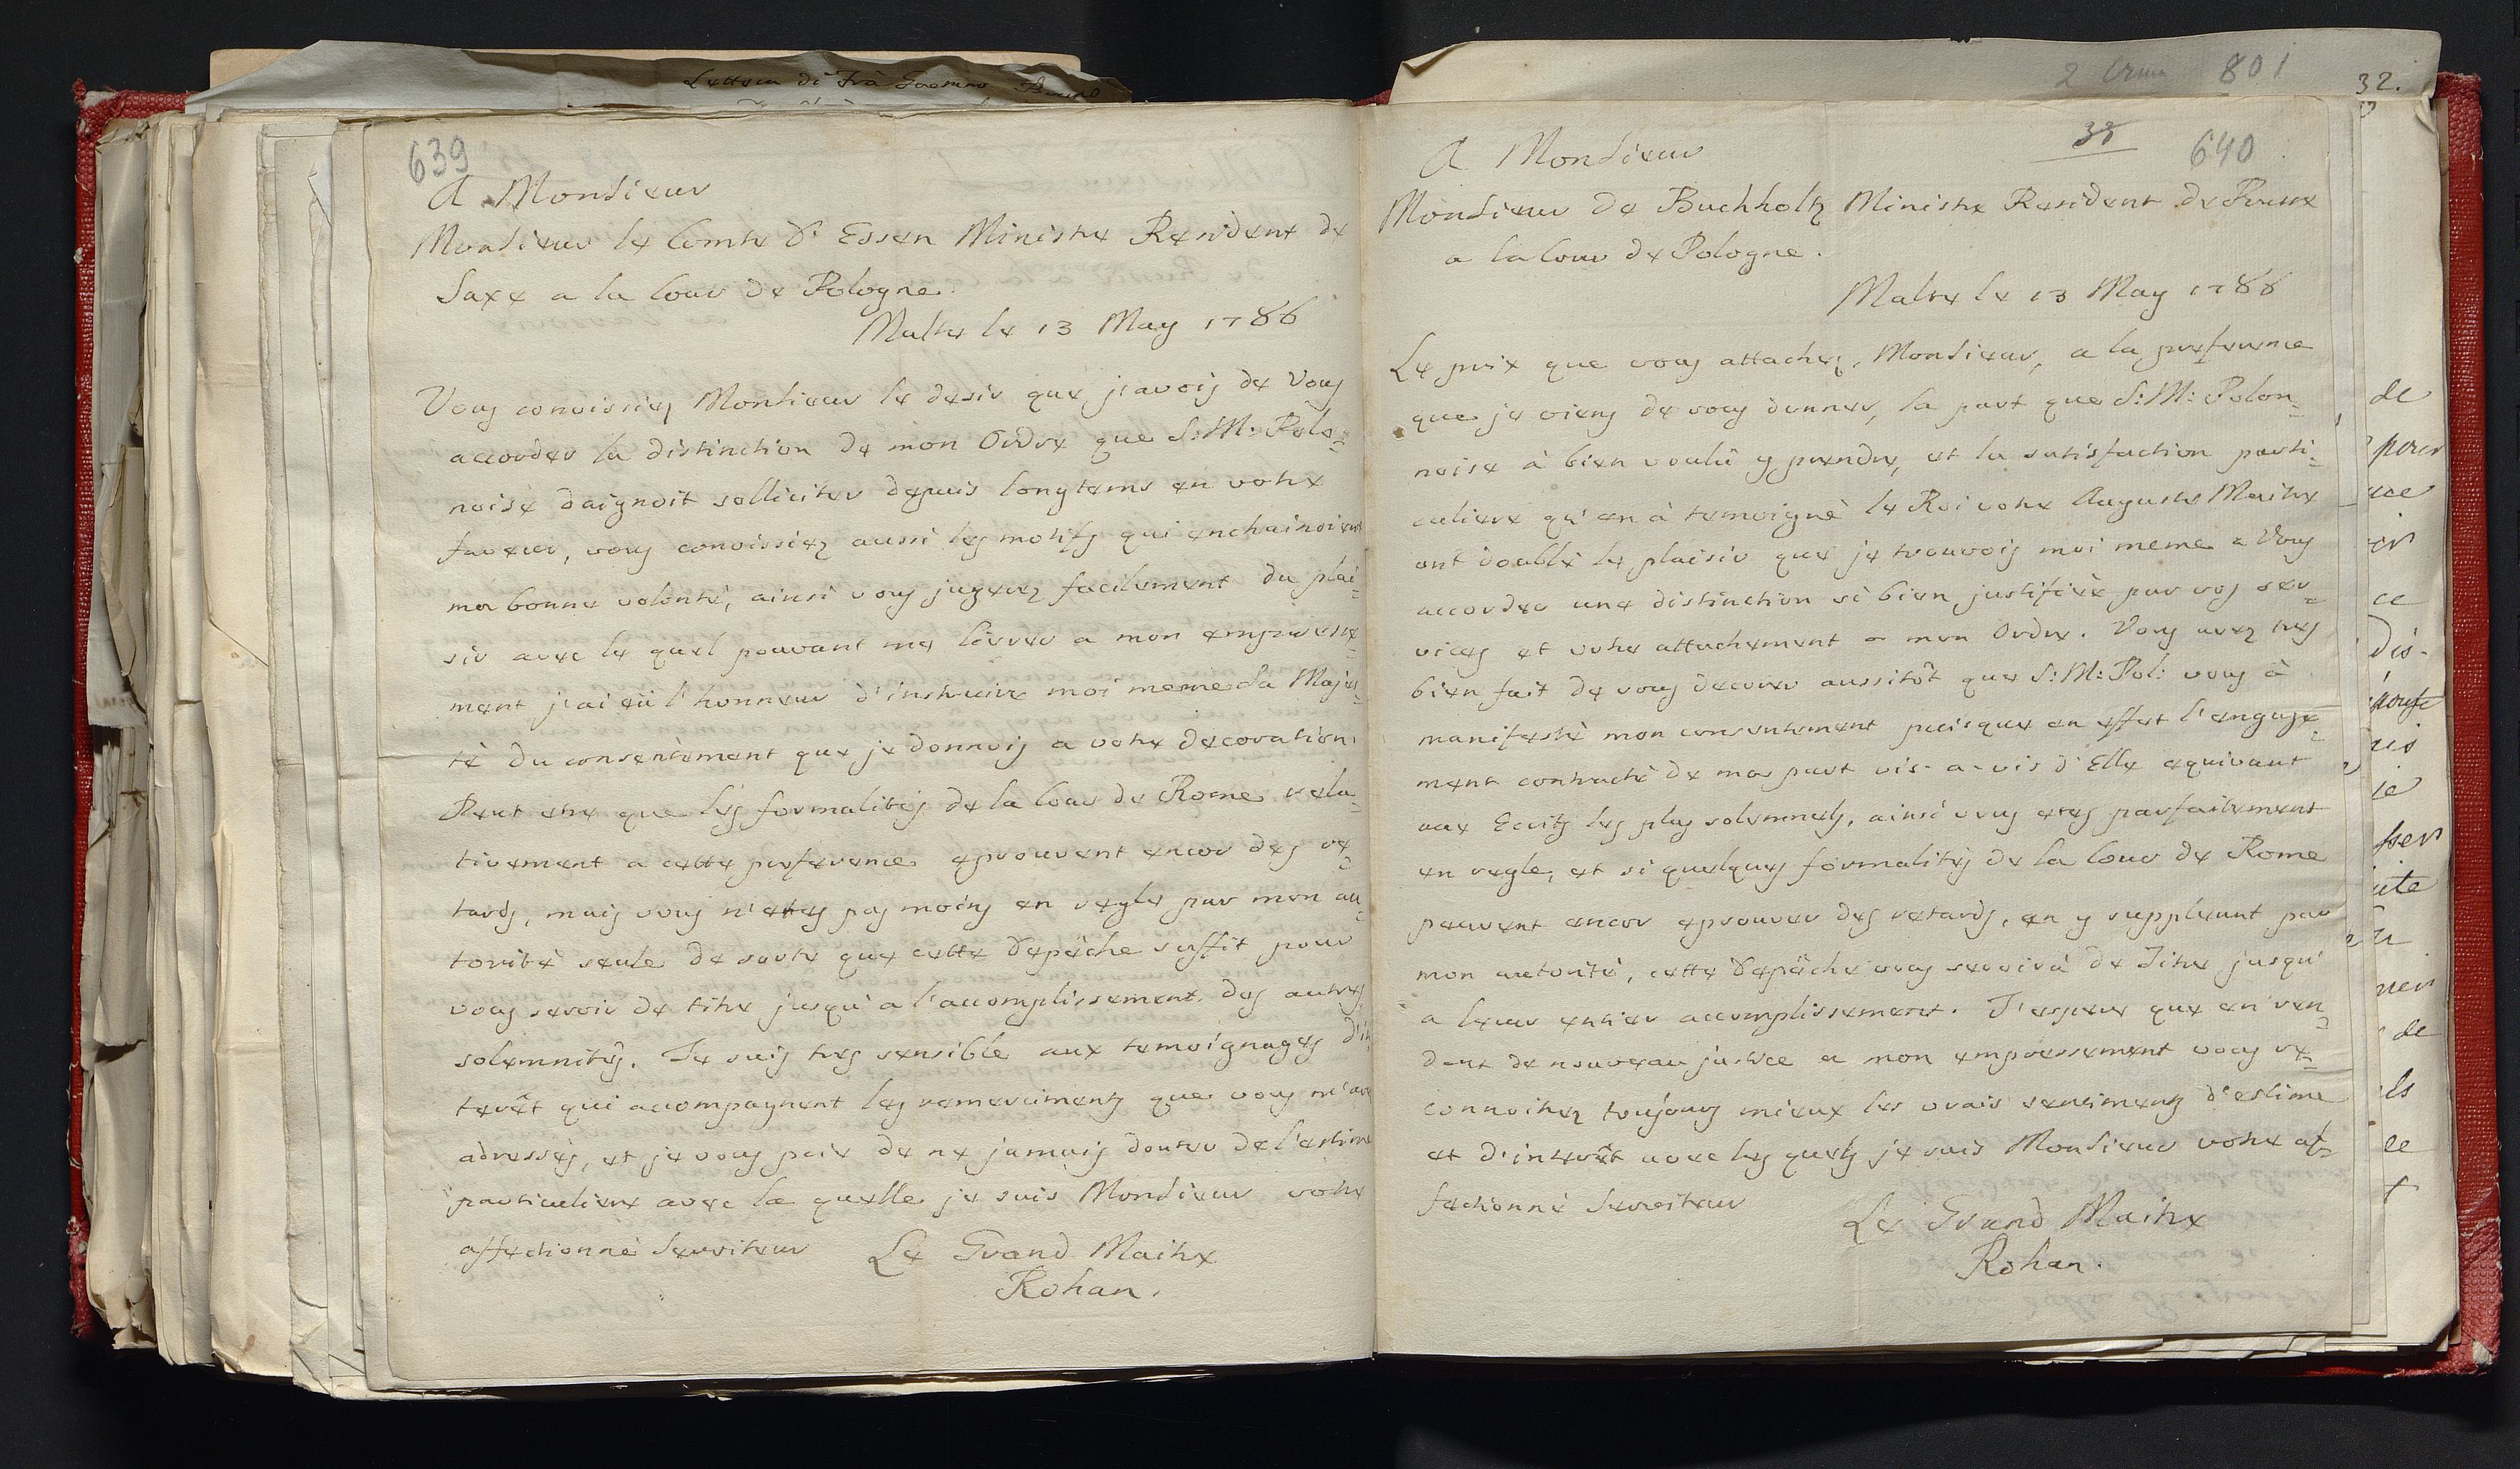 Lettera di frà
2 801
32.
639
A Monsieur
Monsieur le Comte d'Essen Ministre Resident de
Saxe a la Cour de Pologne.
Malte le 13 May 1786
Vous conoissiez Monsieur le desir que j'avois de Vous
accorder la distinction de mon Ordre que S:M: Polo=
noise daignoit solliciter depuis longtems en votre
faveur, vous conoissiez aussi les motifs qui enchainoient
ma bonne volonté, ainsi vous jugerez facilement du plai=
sir avec le quel pouvant me livrer a mon empresse=
ment j'ai eü l'honneur d'instruire moi meme Sa Majes=
té du consentement que je donnois a votre decoration.
Peut etre que les formalités de la Cour de Rome rela=
tivement a cette preference eprouvent encor des re=
tards, mais vous n'etes pas moins en regle par mon au=
torité seule de sorte que cette depêche suffit pour
vous servir de titre jusqu'a l'accomplissement des autres
solemnités. Je suis tres sensible aux temoignages d'in
terêt qui accompagnent les remerciments que vous m'avez
adressés, et je vous prie de ne jamais douter de l'estime
particuliere avec la quelle je suis Monsieur votre
affectionné Serviteur Le Grand Maitre
Rohan.
38 640
A Monsieur
Monsieur de Buchholtz Ministre Resident de Prusse
a la Cour de Pologne.
Malte le 13 May 1786
Le prix que vous attachez, Monsieur, a la preference
que je viens de vous donner, la part que S:M: Polon=
noise à bien voulû y prendre, et la satisfaction parti=
culiere qu'en à temoigné le Roi votre Auguste Maitre
ont doublé le plaisir que je trouvois moi meme a Vous
accorder une distinction si bien justifiée par vos ser=
vices et votre attachement a mon Ordre. Vous avez tres
bien fait de vous decorer aussitôt que S:M:Pol: vous à
manifesté mon consentement puisque en effet l'engage=
ment contracté de ma part vis-a-vis d'Elle equivaut
aux Ecrits les plus solemnels, ainsi vous etes parfaitement
en regle, et si quelques formalités de la Cour de Rome
peuvent encor eprouver des retards, en y suppleant par
mon autorité, cette depêche vous servira de Titre jusqu'
a leur entier accomplissement. J'espere que en ren=
dant de nouveau justice a mon empressement vous re=
connoitrez toujours mieux les vrais sentiments d'estime
et d'interêt avec les quels je suis Monsieur votre af=
fectionné Serviteur
Le Grand Maitre
Rohan.
de
pour
ce
dis-
ie
ser
de
ls
ee
t